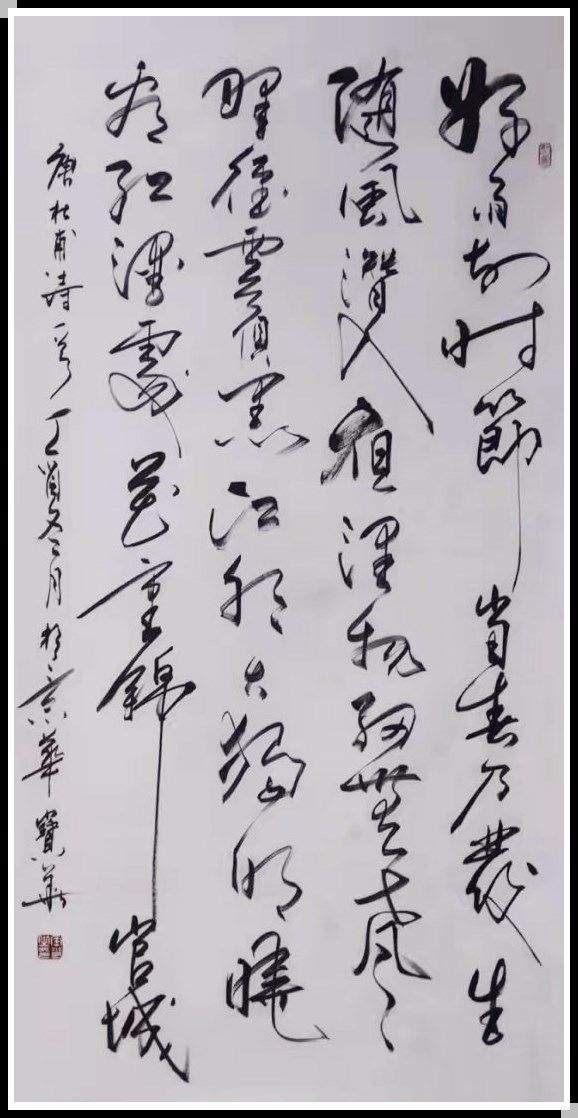 好雨知时節當春乃發生
隨風潛入夜潤物細無聲
野徑雲俱黑江船火獨明曉
看紅濕處花重錦官城
唐杜甫詩一首丁酉冬月於京華寶華